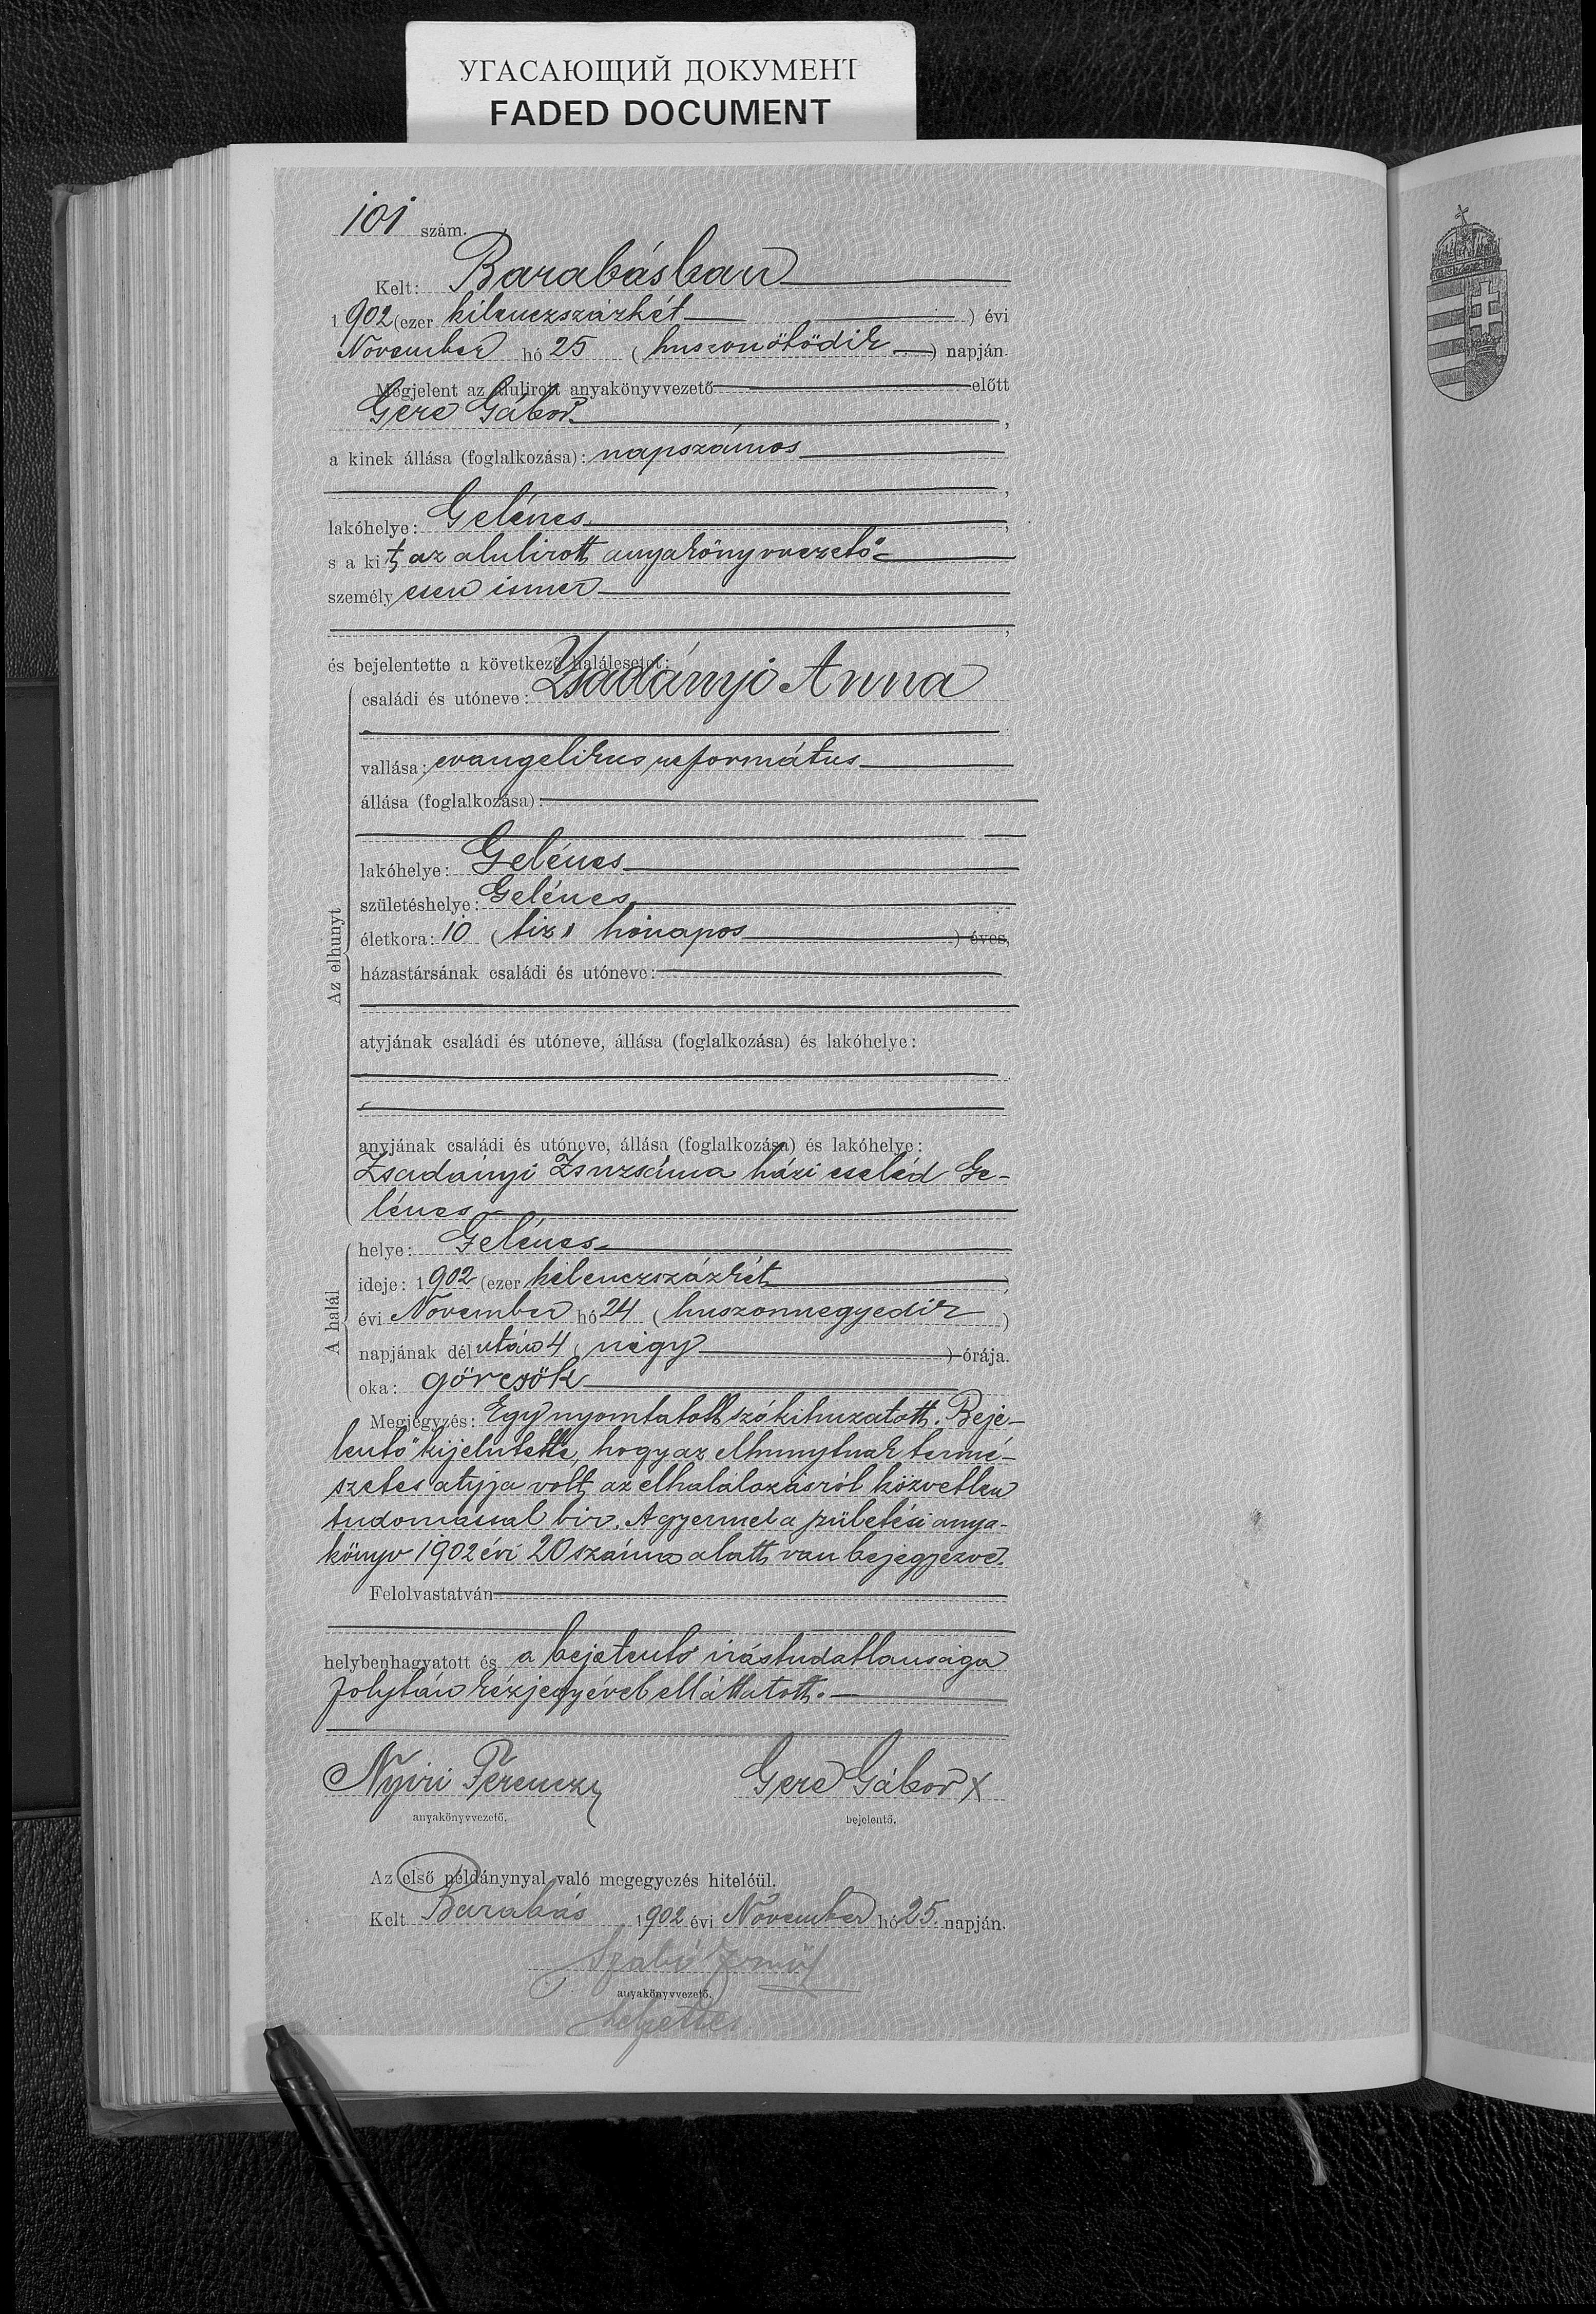 УГАСАЮЩИЙ ДОКУМЕНТ
FADED DOCUMENT
101 szám.
Kelt: Barabásban
1902 (ezer kilenczszázkét ) évi
November hó 25 ( huszonötödik ) napján.
Megjelent az alulirott anyakönyvvezető előtt
Gere Gábor,
a kinek állása (foglalkozása): napszámos
,
lakóhelye: Gelénes,
s a kit az alulirott anyakönyvvezető
személyesen ismer
,
és bejelentette a következő halálesetet:
Az elhunyt
családi és utóneve: Zsadányi Anna
vallása: evangelikus református
állása (foglalkozása):
lakóhelye: Gelénes
születéshelye: Gelénes
életkora: 10 ( tiz ) hónapos ) éves,
házastársának családi és utóneve:
atyjának családi és utóneve, állása (foglalkozása) és lakóhelye:
anyjának családi és utóneve, állása (foglalkozása) és lakóhelye:
Zsadányi Zsuzsánna házi cseléd Ge-
lénes
A halál
helye: Gelénes
ideje: 1902 (ezer kilenczszázkét )
évi November hó 24 ( huszonnegyedik )
napjának délután 4 ( négy ) órája.
oka: görcsök
Megjegyzés: Egy nyomtatott szó kihuzatott. Beje-
lentő kijelentette, hogy az elhunytnak termé-
szetes atyja volt, az elhalálozásról közvetlen
tudomással bir. A gyermek a születési anya-
könyv 1902 évi 20 száma alatt van bejegyezve.
Felolvastatván
helybenhagyatott és a bejelentő irástudatlansága
folytán kézjegyével elláttatott.
Nyiri Ferencz
Gere Gábor X
anyakönyvvezető.
bejelentő.
Az első példánynyal való megegyezés hiteléül.
Kelt Barabás 1902 évi November hó 25. napján.
Szabó
anyakönyvvezető.
helyettes